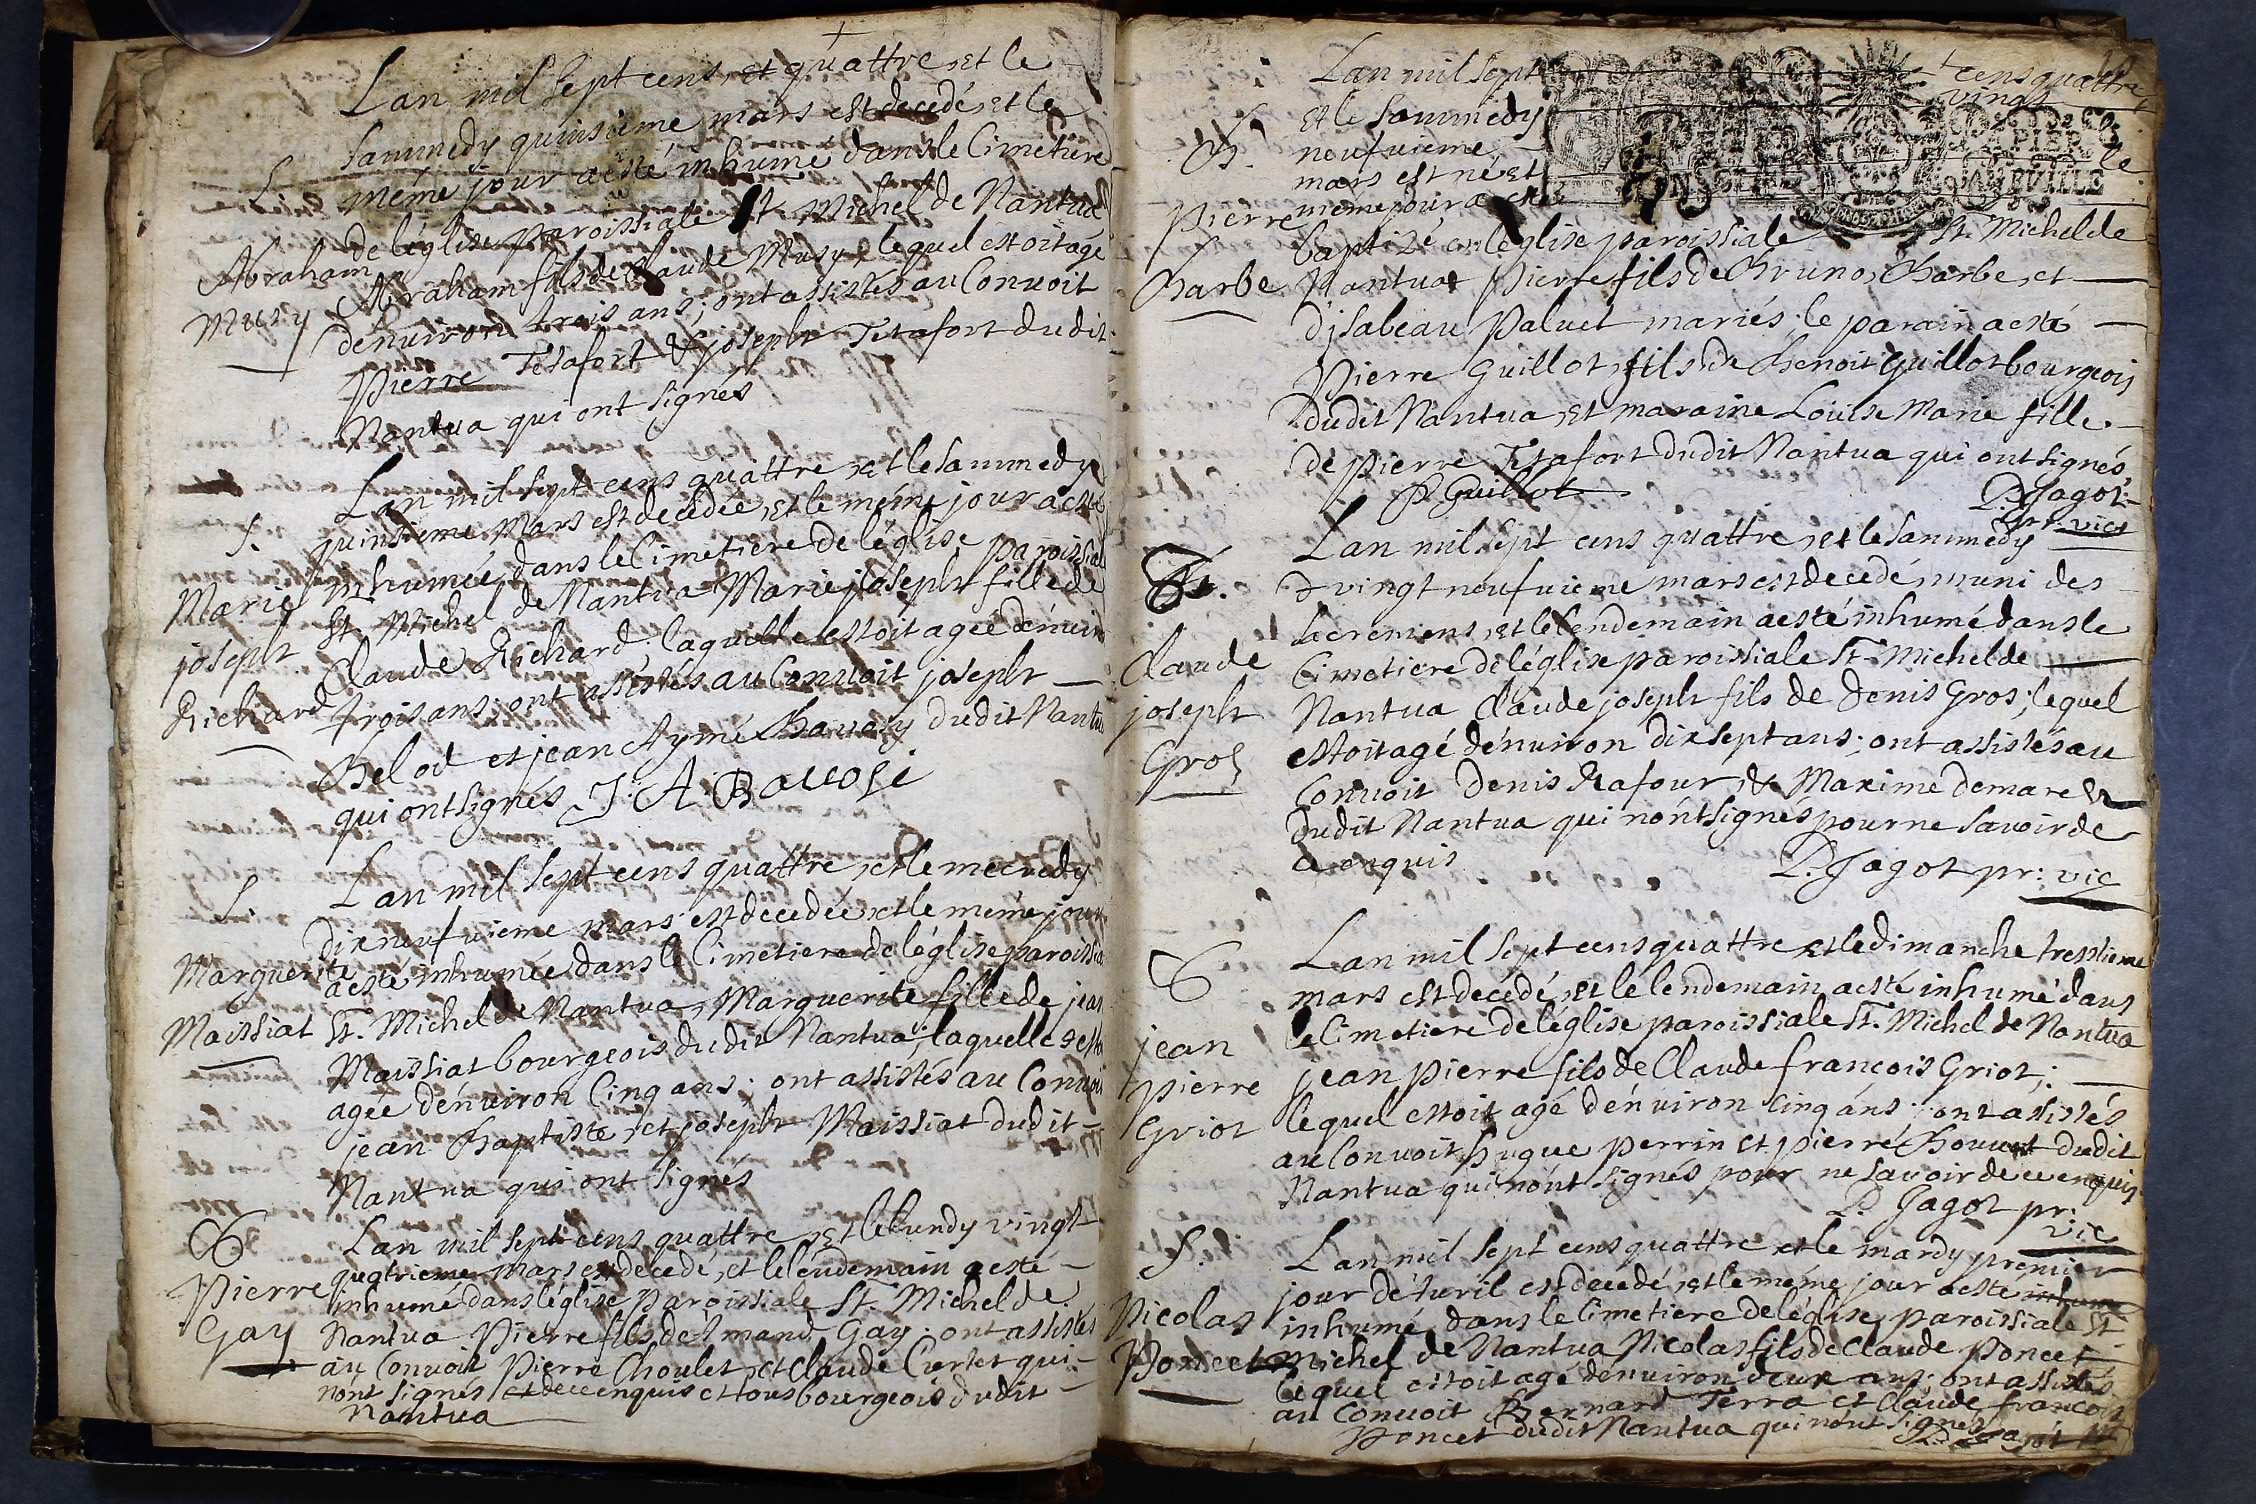 Lan mil sept cens, et quattre, et le
sammedy quinsieme mars est decedé, et le
même jour a esté inhumé dans le Cimetiere
de l'église paroissiale St. Michel de Nantua
Abraham
Musy
Abraham fils de Claude Musy, lequel estoit agé
d'énuiron trois ans; ont assistés au Conuoit
Pierre Tetafort & joseph Tetafort dudit
Nantua qui ont signés
Lan mil sept cens quattre, et le sammedy
quinsieme mars est decedée, et le même jour a esté
inhumée, dans le Cimetiere de l'église paroissiale
St. Michel de Nantua Marie joseph fille de
Claude Richard laquelle estoit agée d'énuiron
trois ans; ont assistés au Conuoit joseph
Belod et jean Aymé Bauosy dudit Nantua
qui ont signés J. A. Bauosi
S.
Marie
joseph
Richard
Lan mil sept cens quattre, et le mecredy
dix neufuieme mars est decedée, et le même jour
a esté inhumée dans le Cimetiere de l'église paroissiale
St. Michel de Nantua, Marguerite fille de jean
Maissiat bourgeois dudit Nantua; laquelle estoit
agée d'énuiron Cinq ans; ont assistés au Conuoit
jean Baptiste, et joseph Maissiat dudit
Nantua qui ont signés
Marguerite
Maissiat
Lan mil sept cens quattre, et le lundy vingt
quatrieme mars est decedé, et le lendemain a esté
inhumé dans l'église paroissiale St. Michel de
Nantua Pierre fils de Gay; ont assistés
au Conuoit Pierre Choulet, et Claude Curlet qui
n'ont signés et de ce enquis et tous bourgeois dudit
Nantua
Pierre
Gay
Lan mil sept cens quattre
vingt
et le sammedy
neufuieme le
mars est né et
même jour a esté
baptizé en l'église paroissiale St. Michel de
Nantua Pierre fils de Bruno, Barbe, et
d'jsabeau Paluet mariés; le parain a esté
Pierre Guillot, fils de Benoit Guillot bourgeois
dudit Nantua, et maraine Louise Marie fille
de pierre Tetafort dudit Nantua qui ont signés
P. Guillot P. Jagot
pr. vic
B.
Pierre
Barbe
Lan mil sept cens quattre, et le sammedy
vingt neufuieme mars est decedé, muni des
sacremens, et le lendemain a esté inhumé dans le
Cimetiere de l'église paroissiale St. Michel de
Nantua Claude joseph fils de Denis Gros; lequel
estoit agé d'énuiron dix sept ans; ont assistés au
Conuoit Denis Rafour, & Maxime demare
dudit Nantua qui n'ont signés pour ne sauoir de
ce enquis P. Jagot pr: vic
Claude
joseph
Gros
Lan mil sept cens quattre et le dimanche trentieme
mars est decedé, et le lendemain a esté inhumé dans
le Cimetiere de l'église paroissiale St. Michel de Nantua
jean pierre fils de Claude françois Griot;
lequel estoit agé d'énuiron cinq ans; ont assistés
au Conuoit hugue Perrin et pierre Bouuet dudit
Nantua qui n'ont signés pour ne sauoir de ce enquis
P. Jagot pr:
vic
jean
pierre
Griot
Lan mil sept cens quattre et le mardy premier
jour d'éturil est decedé, et le même jour a esté inhumé
inhumé dans le Cimetiere de l'église paroissiale St
Michel de Nantua Nicolas fils de Claude Poncet
lequel estoit agé d'enuiron deux ans; ont assistés
au Conuoit Bernard Terra et Claude françois
Poncet dudit Nantua qui n'ont signés P. Jagot
S.
Nicolas
Poncet